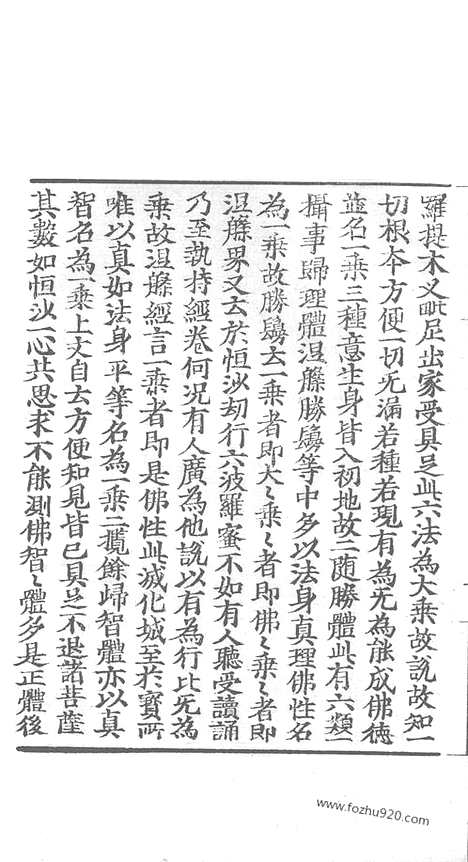 羅提木叉毗尼出家受具足此六法為大乘故說故知一
切根夲方便一切无漏若種若現有為无為能成佛德
並名一乘三種意生身皆入初地故二随勝體此有六類一
攝事歸理體涅槃勝鬘等中多以法身真理佛性名
為一乘故勝鬘云一乘者即大〻乘〻者即佛〻乘〻者即
涅槃界又云於恒沙劫行六波羅蜜不如有人聽受讀誦
乃至執持經卷何况有人廣為他說以有為行比无為
乘故涅槃經言一乘者即是佛性此滅化城至於寶所
唯以真如法身平等名為一乘二攬餘歸智體亦以真
智名為一乘上文自云方便知見皆已具足不退諸菩薩
其數如恒沙一心共思求不能測佛智〻體多是正體後
www.fozhu920.com